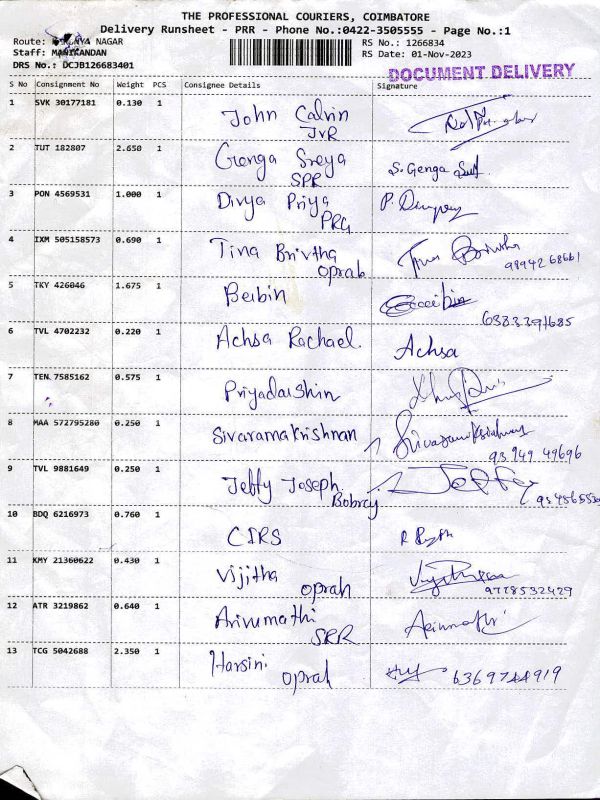 THE PROFESSIONAL COURIERS, COIMBATORE
Delivery Runsheet - PRR - Phone No.:0422-3505555 - Page No.:1
Route: NAGAR
Staff: MANIKANDAN
DRS No.: DCJB126683401
RS No.: 1266834
RS Date: 01-Nov-2023
DOCUMENT DELIVERY
S No Consignment No Weight PCS Consignee Details Signature
1 SVK 30177181 0.130 1 John Calvin
JVR
2 TUT 182807 2.650 1 Genga Sreya S. Genga
SPR
3 PON 4569531 1.000 1 Divya Priya P.
PRG
4 IXM 505158573 0.690 1 Tina Brivtha Tina
oprah 9894268661
5 TKY 426046 1.675 1 Beibin
6383391685
6 TVL 4702232 0.220 1 Achsa Rachael. Achsa
7 TEN 7585162 0.575 1 Priyadarshin
8 MAA 572795280 0.250 1 Sivaramakrishnan
93949 49696
9 TVL 9881649 0.250 1 Jeffy Joseph. Jeffy
Bobrcy
10 BDQ 6216973 0.760 1 CIRS R
11 KMY 21360622 0.430 1 Vijitha
oprah 9778532429
12 ATR 3219862 0.640 1 Arivumathi
SRR
13 TCG 5042688 2.350 1 Harsini 6369744919
oprah